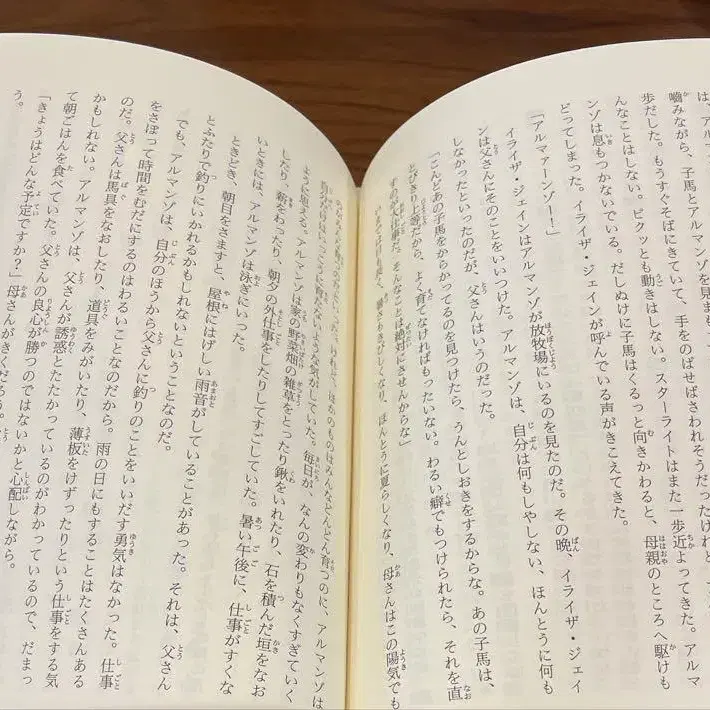 は、アルマンゾを見ま
嚙みながら、子馬とアルマンゾを
歩だした。もうすぐそばにきていて、手をのばせばさわれそうだったけれど
んなことはしない。ピクッとも動きはしない。スターライトはまた一歩近よってきた。アルマ
ンゾは息もつかないでいる。だしぬけに子馬はくるっと向きかわると、母親のところへ駆けも
どってしまった。イライザ・ジェインが呼んでいる声がきこえてきた。
「アルマァーンゾー!」
イライザ・ジェインはアルマンゾが放牧場にいるのを見たのだ。その晩、イライザ・ジェイ
ンは父さんにそのことをいいつけた。アルマンゾは、自分は何もしやしない、ほんとうに何も
しなかったといったのだが、父さんはいうのだった。
「こんどあの子馬をからかってるのを見つけたら、うんとしおきをするからな。あの子馬は、
とびきり上等だから、よく育てなければもったいない。わるい癖でもつけられたら、それを直
すのが大事だ。そんなことは絶対にさせんからな」
いまでは日も長く、暑さもきびしくなり、ほんとうに夏らしくなり、母さんはこの陽気でも
けれど、ほかのものはみんなどんどん育つのに、アルマンゾは
自分だけはいっこうに育たないような気がしていた。毎日が、なんの変わりもなくすぎていく
ように思える。アルマンゾは家の野菜畑の雑草をとったり鍬をいれたり、石を積んだ垣をなお
したり、薪をわったり、朝夕の外仕事をしたりしてすごしていた。暑い午後に、仕事がすくな
いときには、アルマンゾは泳ぎにいった。
ときどき、朝目をさますと、屋根にはげしい雨音がしていることがあった。それは、父さん
とふたりで釣りにいかれるかもしれないということなのだ。
でも、アルマンゾは、自分のほうから父さんに釣りのことをいいだす勇気はなかった。仕事
をさぼって時間をむだにするのはわるいことなのだから。雨の日にもすることはたくさんある
のだ。父さんは馬具をなおしたり、道具をみがいたり、薄板をけずったりという仕事をする気
かもしれない。アルマンゾは、父さんが誘惑とたたかっているのがわかっているので、だまっ
て朝ごはんを食べていた。父さんの良心が勝つのではないかと心配しながら。
「きょうはどんな予定ですか?」母さんがきくだろう。
う。